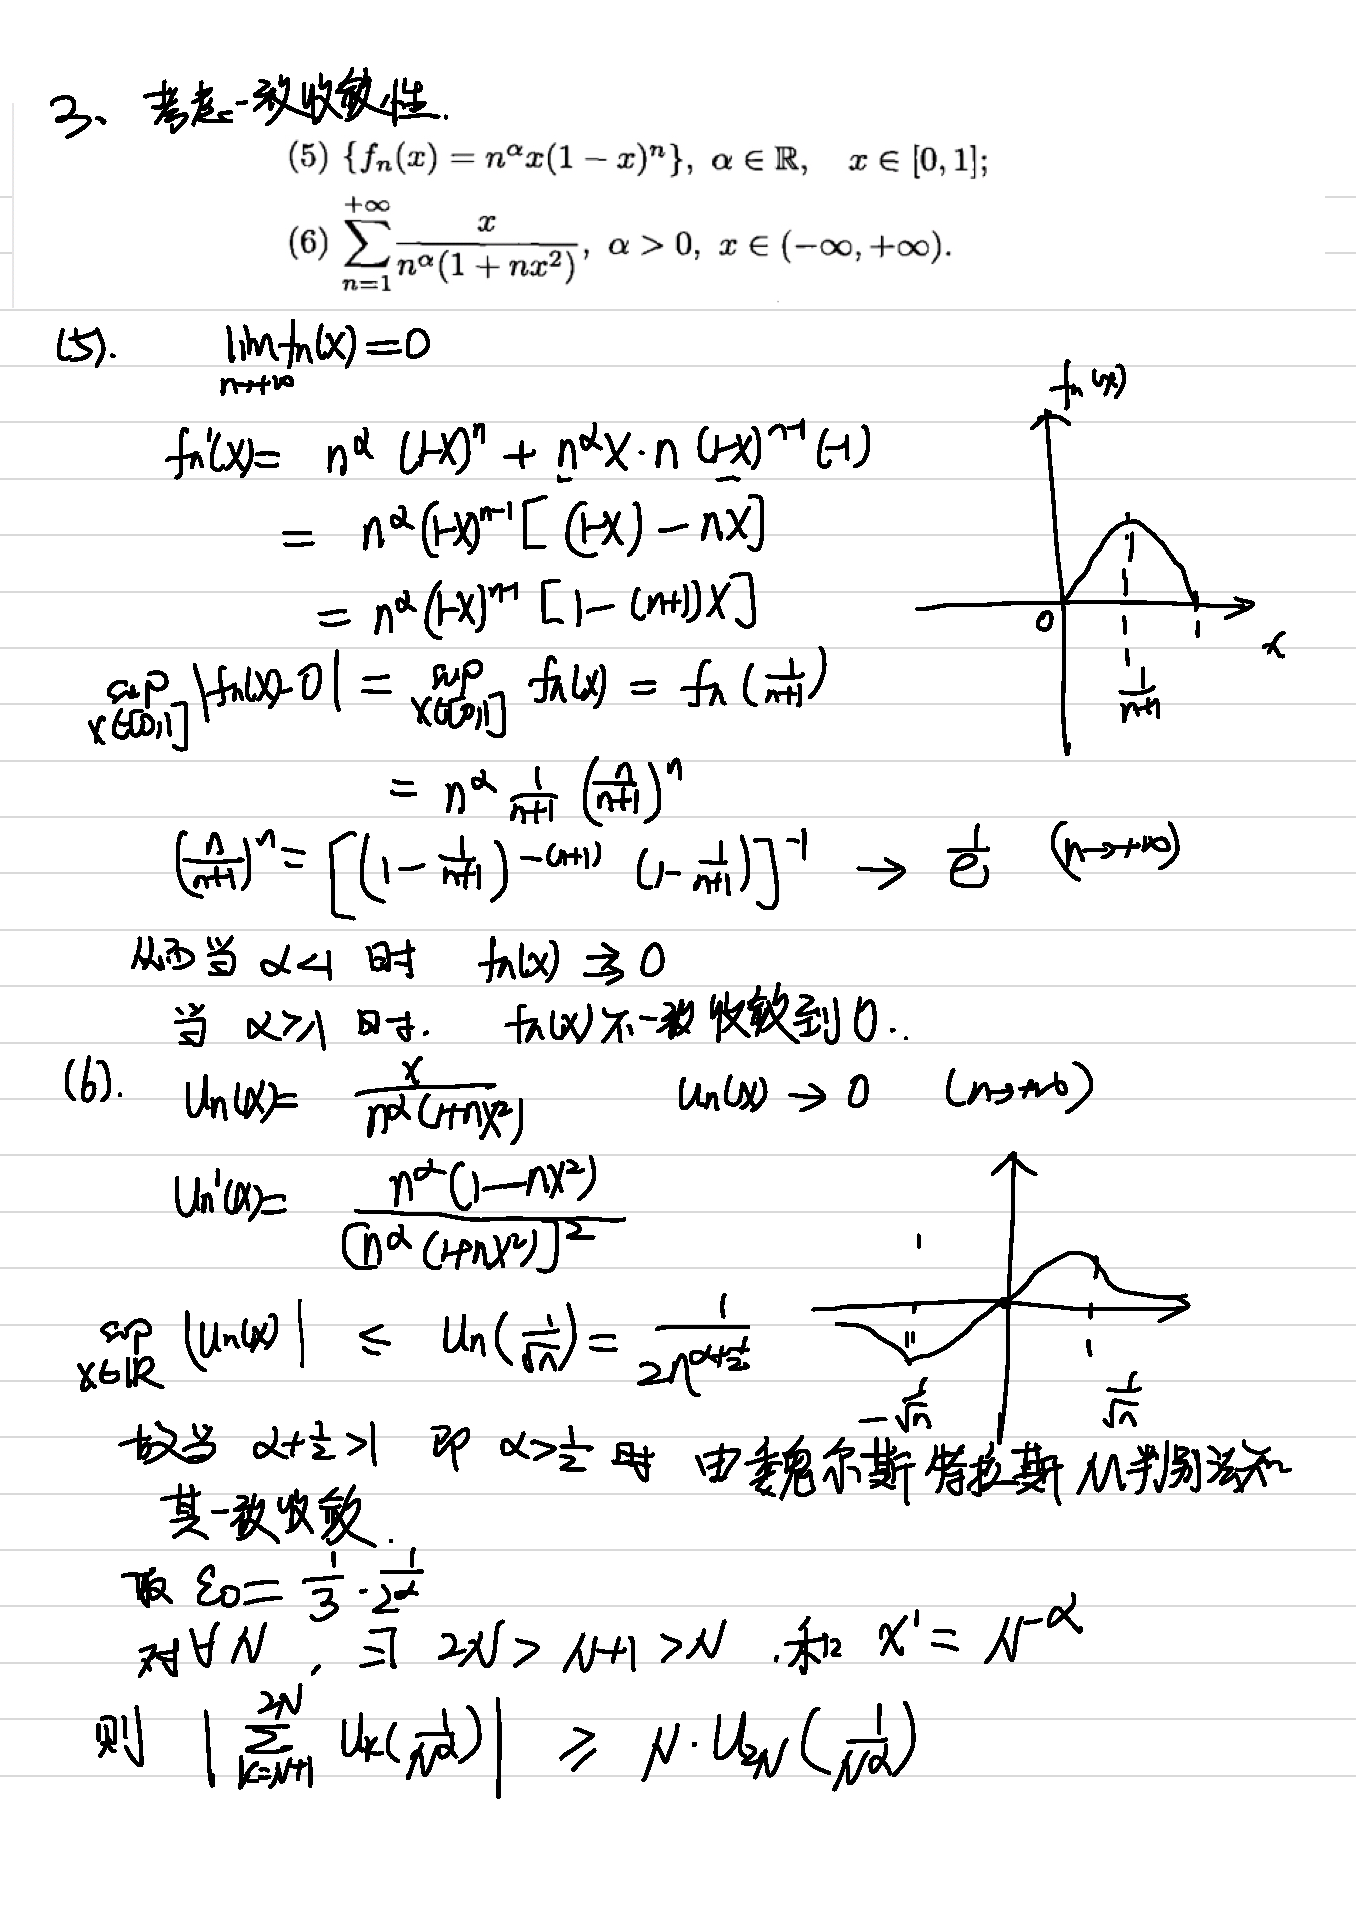 3、考虑一致收敛性.
(5) {fₙ(x) = n^α x(1 − x)ⁿ}, α ∈ ℝ, x ∈ [0, 1];
(6) ∑_{n=1}^{+∞} x / (n^α(1 + nx²)), α > 0, x ∈ (−∞, +∞).
(5). lim_{n→+∞} fₙ(x) = 0
fₙ(x)
fₙ'(x) = n^α (1-x)ⁿ + n^α x · n (1-x)^{n-1} (-1)
= n^α (1-x)^{n-1} [ (1-x) − nx ]
= n^α (1-x)^{n-1} [ 1 − (n+1)x ]
0 1 x
1/(n+1)
sup_{x∈[0,1]} |fₙ(x)-0| = sup_{x∈[0,1]} fₙ(x) = fₙ(1/(n+1))
= n^α 1/(n+1) (n/(n+1))ⁿ
(n/(n+1))ⁿ = [ (1 − 1/(n+1))^{-(n+1)} (1 − 1/(n+1)) ]^{-1} → 1/e (n→+∞)
从而当 α<1 时 fₙ(x) ⇉ 0
当 α≥1 时. fₙ(x) 不一致收敛到 0.
(6). Uₙ(x) = x / (n^α(1+nx²)) Uₙ(x) → 0 (n→+∞)
Uₙ'(x) = n^α(1−nx²) / [n^α(1+nx²)]²
sup_{x∈ℝ} |Uₙ(x)| ≤ Uₙ(1/√n) = 1 / (2n^{α+1/2})
−1/√n 1/√n
故当 α+1/2 >1 即 α>1/2 时 由魏尔斯特拉斯 M判别法知
其一致收敛.
取 ε₀ = 1/3 · 1/2^α
对∀N, ∃ 2N > N+1 > N . 和 x' = N^{-α}
则 | ∑_{k=N+1}^{2N} U_k(1/N^α) | ≥ N · U_{2N}(1/N^α)